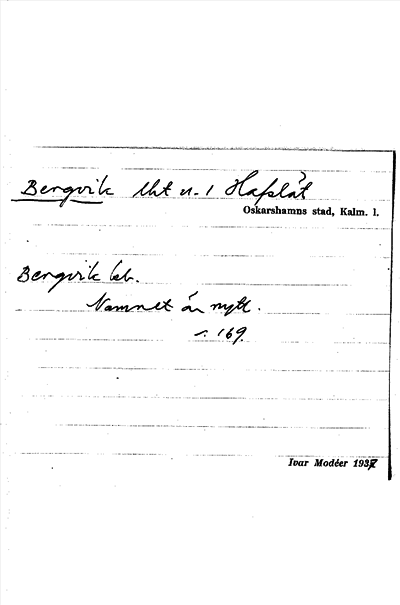 Bergvik lht n. 1 Hafslåt
Oskarshamns stad, Kalm. l.
Bergvik lht.
Namnet är nytt.
s. 169.
Ivar Modéer 1937